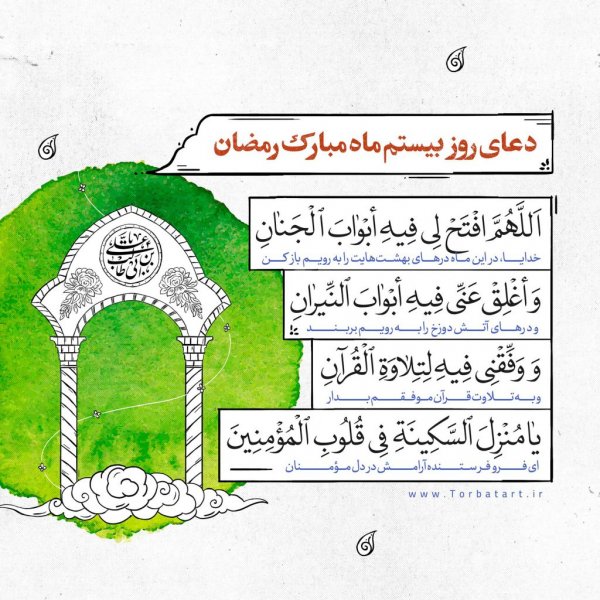 دعای روز بیستم ماه مبارک رمضان
اَللَّهُمَّ افْتَحْ لِی فِیهِ أَبْوَابَ الْجَنَانِ
خدایا، در این ماه درهای بهشت‌هایت را به رویم باز کن
وَ أَغْلِقْ عَنِّی فِیهِ أَبْوَابَ النِّیرَانِ
و درهای آتش دوزخ را به رویم بربند
وَ وَفِّقْنِی فِیهِ لِتِلاوَةِ الْقُرْآنِ
و به تلاوت قرآن موفقم بدار
یَا مُنْزِلَ السَّکِینَةِ فِی قُلُوبِ الْمُؤْمِنِینَ
ای فرو فرستنده آرامش در دل مؤمنان
www.Torbatart.ir
علی بن ابی طالب